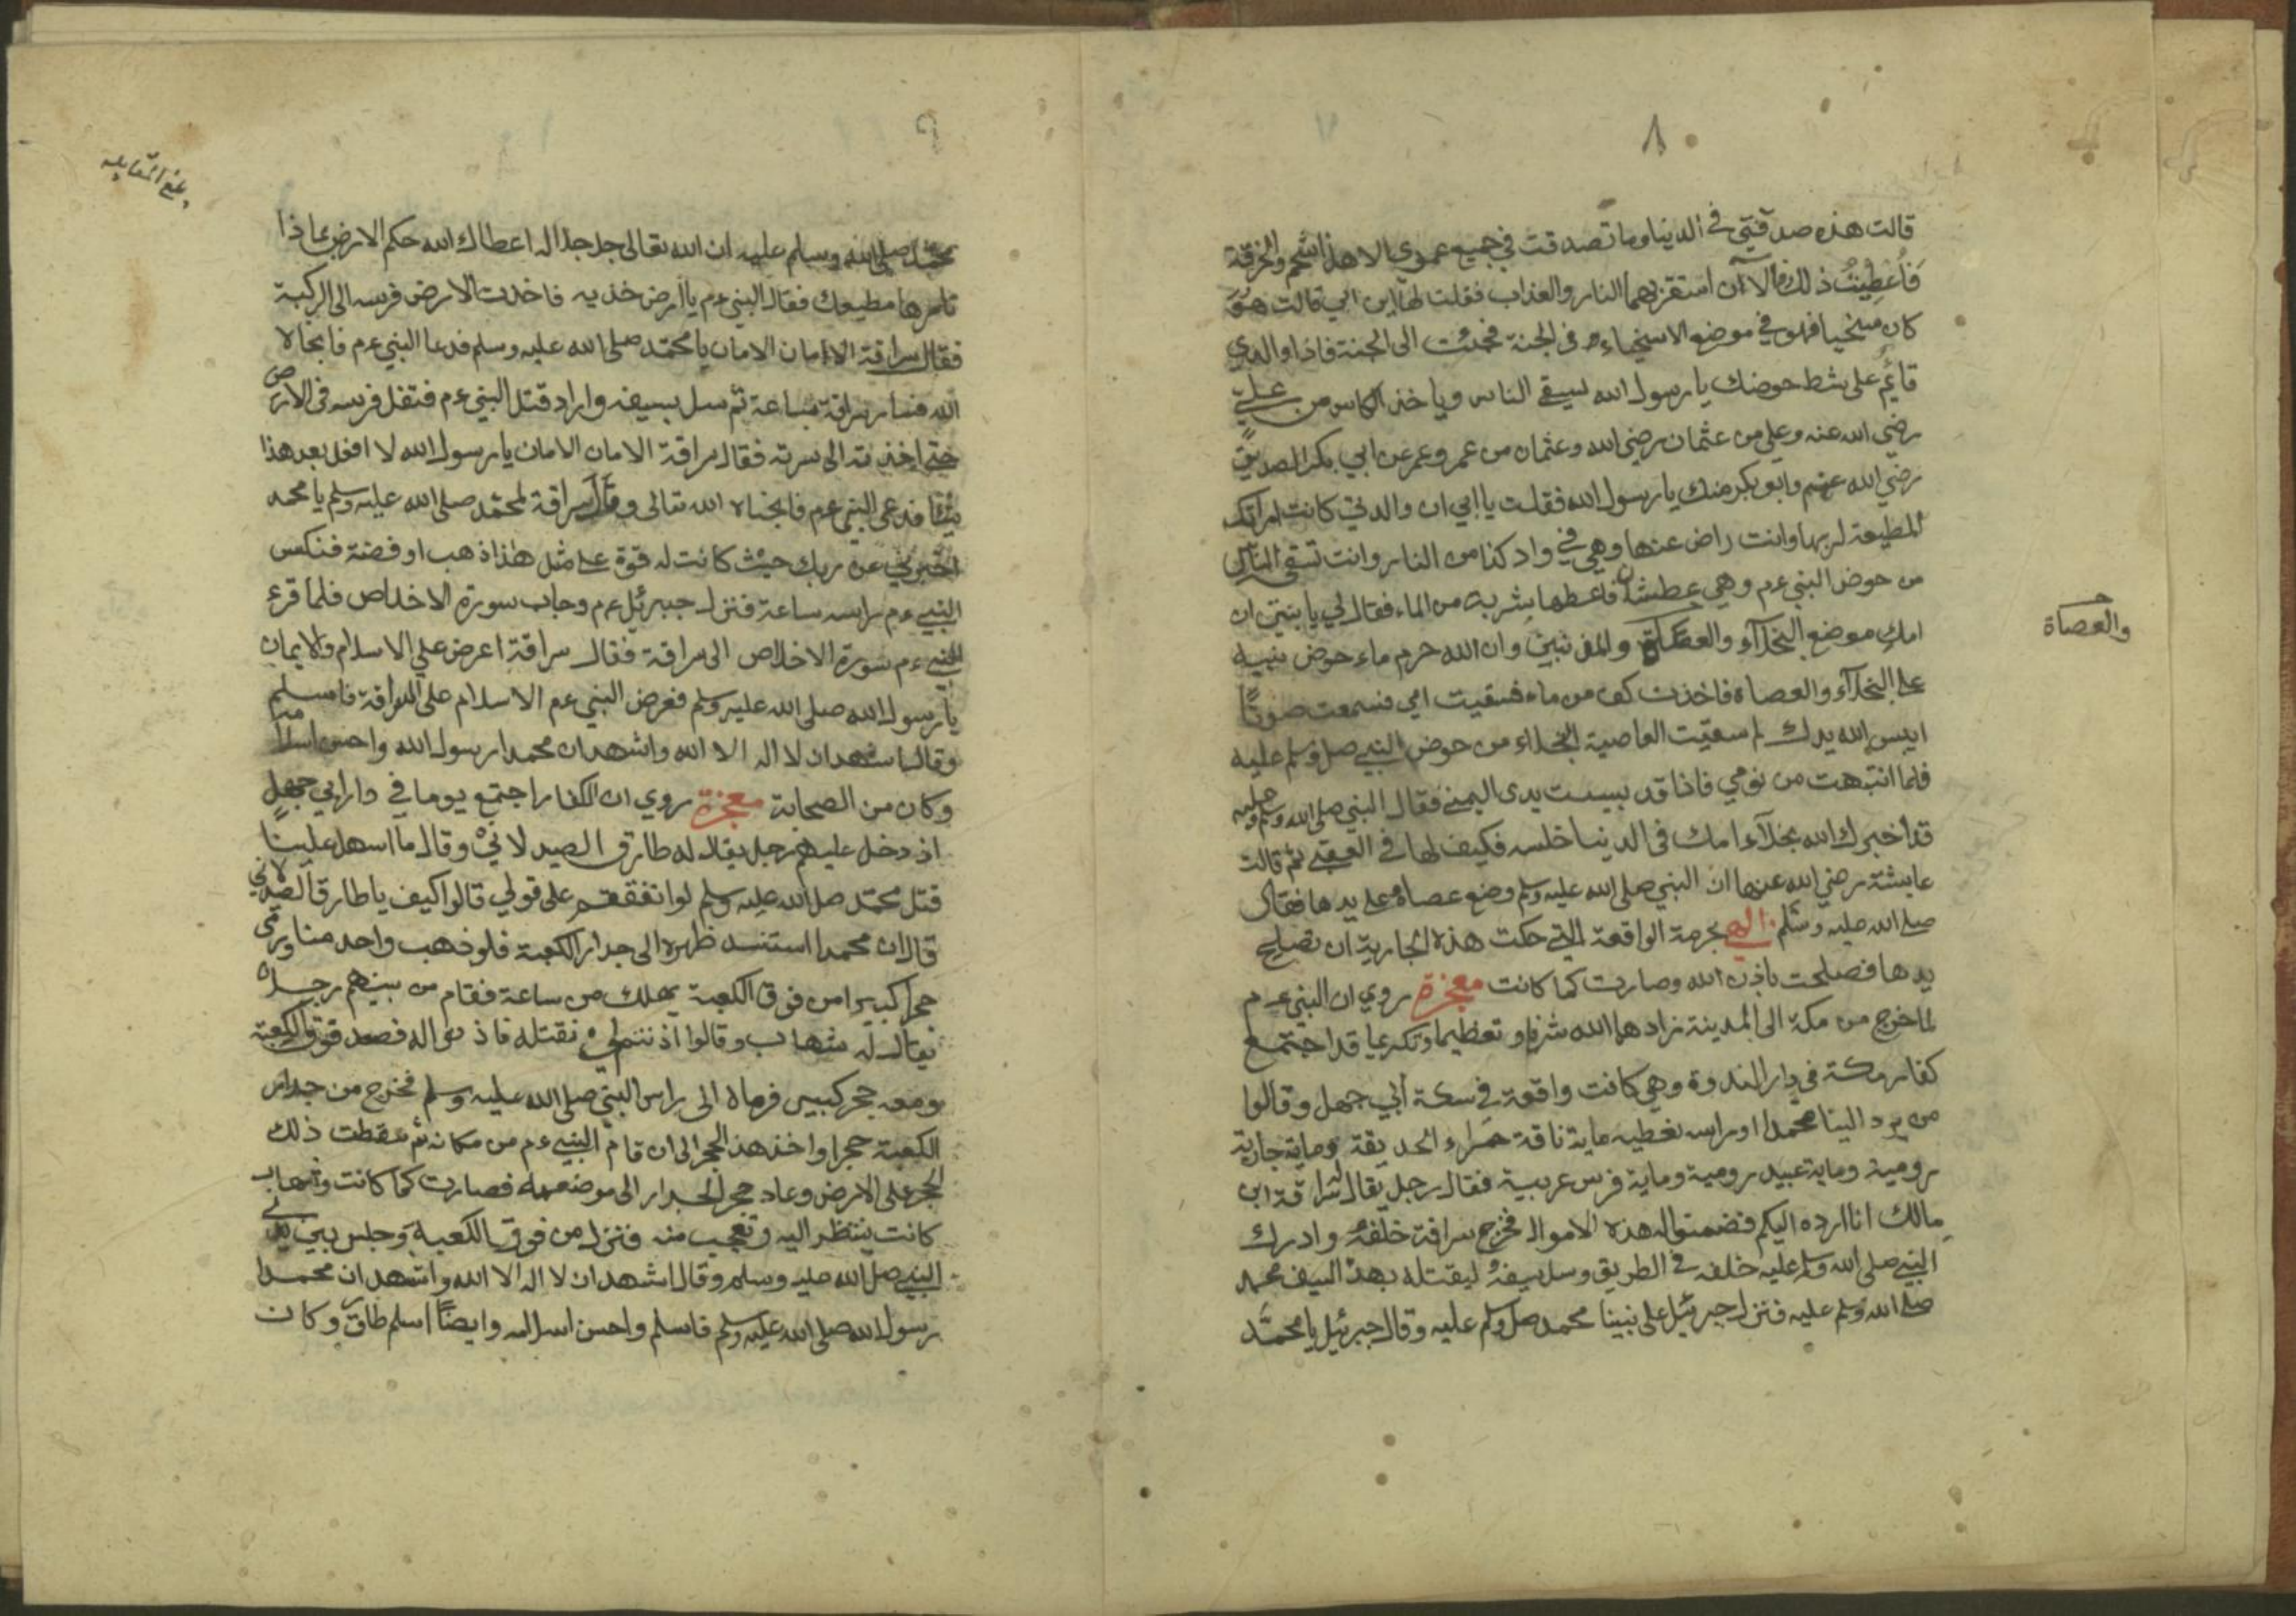 ٨
قالت هذه صدقتي في الدنيا وما تصدقت في جميع عمري الا هذا الشحم والخرقة
فأعطيت ذلك فالآن استقر بهما النار والعذاب فقلت لها اين ابي قالت هو
كان سخيا فهو في موضع الاسخياء في الجنة فجئت الى الجنة فاذا والدي
قائم على شط حوضك يا رسول الله يسقي الناس وياخذ الكاس من علي
رضي الله عنه وعلي من عثمان رضي الله وعثمان من عمر وعمر من ابي بكر الصديق
رضي الله عنهم وابو بكر منك يا رسول الله فقلت يا ابي ان والدتي كانت امراتك
المطيعة لربها وانت راض عنها وهي في واد كذا من النار وانت تسقي الناس
من حوض النبي ءم وهي عطشان فاعطها شربة من الماء فقال لي يا بنتي ان
امك موضع البخلآء والعصاة والمذنبين وان الله حرم ماء حوض نبيه
والعصاة
على البخلآء والعصاة فاخذت كف من ماء فسقيت امي فسمعت صوتًا
ايبس الله يدك لم سقيت العاصية البخلاء من حوض النبي صل وسلم عليه
فلما انتبهت من نومي فاذا قد يبست يدى اليمنى فقال النبي صلى الله وسلم عليه
قد اخبرك الله بخلآء امك في الدنيا خلسه فكيف لها في العقبى ثم قالت
عايشة رضي الله عنها ان النبي صلى الله عليه وسلم وضع عصاه على يدها فقال
صلى الله عليه وسلم الهي بحرمة الواقعة التي حكت هذه الجارية ان تصلح
يدها فصلحت باذن الله وصارت كما كانت معجزة روي ان النبي ءم
لما خرج من مكة الى المدينة زادهما الله شرفا وتعظيما وتكريما قد اجتمع
كفار مكة في دار الندوة وهي كانت واقعة في سكة ابي جهل وقالوا
من يرد الينا محمدا او راسه نعطيه ماية ناقة حمراء الحديقة وماية جارية
رومية وماية عبيد رومية وماية فرس عربية فقال رجل يقال سراقة ابن
مالك انا ارده اليكم فضمنوا له هذه الاموال فخرج سراقة خلفه وادرك
النبي صلى الله وسلم عليه خلفه في الطريق وسل سيفه ليقتله بهذ السيف محمد
صلى الله وسلم عليه فنزل جبرئيل على نبينا محمد صل وسلم عليه وقال جبرئيل يا محمد
٩
بلغ المقابله
محمد صلى الله وسلم عليه ان الله تعالى جل جلاله اعطاك الله حكم الارض بماذا
تامرها مطيعك فقال النبي ءم يا ارض خذيه فاخذت الارض فرسه الى الركبة
فقال سراقة الامان الامان يا محمد صلى الله عليه وسلم فدعا النبي ءم فانجاه
الله فسار سراقة ساعة ثم سل سيفه واراد قتل النبي ءم فتقل فرسه في الارض
حتى اخذته الى سرته فقال سراقة الامان الامان يا رسول الله لا افعل بعد هذا
شيئا فدعى النبي ءم فانجاه الله تعالى وقال سراقة لمحمد صلى الله عليه وسلم يا محمد
اخبرني عن ربك حيث كانت له قوة على مثل هذا ذهب او فضة فنكس
النبي ءم راسه ساعة فنزل جبرئيل ءم وجاب سورة الاخلاص فلما قرء
النبي ءم سورة الاخلاص الى سراقة فقال سراقة اعرض علي الاسلام والايمان
يا رسول الله صلى الله عليه وسلم فعرض النبي ءم الاسلام على السراقة فاسلم
وقال اشهد ان لا اله الا الله واشهد ان محمدا رسول الله واحسن اسلامه
وكان من الصحابة معجزة روي ان الكفار اجتمع يوما في دار ابي جهل
اذ دخل عليهم رجل يقال له طارق الصيدلاني وقال ما اسهل علينا
قتل محمد صل الله عليه وسلم لو اتفقتم على قولي قالوا كيف يا طارق الصيدلاني
قال ان محمدا استند ظهره الى جدار الكعبة فلو ذهب واحد منا ورمى
حجرا كبيرا من فوق الكعبة يهلك من ساعة فقام من بينهم رجل
يقال له شهاب وقالوا اذنتم لي نقتله فاذنوا له فصعد فوق الكعبة
ومعه حجر كبير فرماه الى راس النبي صلى الله عليه وسلم فخرج من جدار
الكعبة حجرا واخذ هذ الحجر الى ان قام النبي ءم من مكانه ثم سقطت ذلك
الحجر على الارض وعاد حجر الجدار الى موضعه فصارت كما كانت وشهاب
كانت ينتظر اليه وتعجب منه فنزل من فوق الكعبة وجلس بين يدي
النبي صل الله عليه وسلم وقال اشهد ان لا اله الا الله واشهد ان محمدا
رسول الله صلى الله عليه وسلم فاسلم واحسن اسلامه وايضاً اسلم طارق وكان